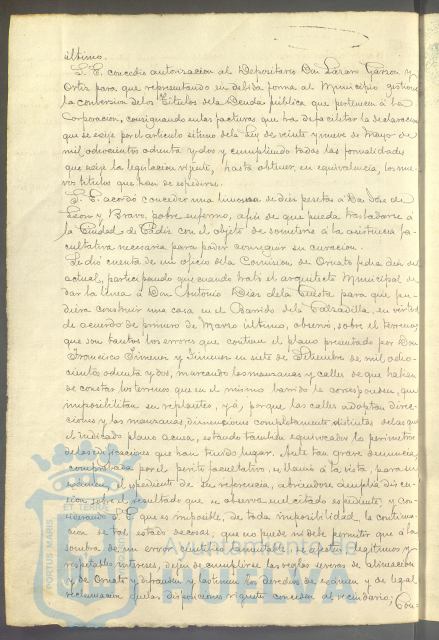 último.
S. E. concedió autorizacion al Depositario Don Lázaro Garzon y
Ortiz para que representando en debida forma al Municipio gestione
la conversion delos Títulos dela Deuda pública que pertenecen á la
Corporacion, consignando en las facturas que ha de facilitar la declaracion
que se exije por el artículo sétimo dela Ley de veinte y nueve de Mayo de
mil ochocientos ochenta y dos y cumpliendo todas las formalidades
que exije la legislacion vijente, hasta obtener, en equivalencia, los nue-
vos títulos que han de espedirse.
S. E. acordó conceder una limosna de diez pesetas a Don José de
Leon y Bravo, pobre enfermo, á fin de que pueda trasladarse á
la Ciudad de Cádiz con el objeto de someterse á la asistencia fa-
cultativa necesaria para poder conseguir su curacion.
Se dió cuenta de un oficio dela Comision de Ornato fecha diez del
actual, participando que cuando trató el arquitecto Municipal de
dar la línea á Don Antonio Diaz dela Cuesta para que pu-
diera construir una casa en el Barrido dela Calzadilla, en virtud
de acuerdo de primero de Marzo último, observó, sobre el terreno,
que son tantos los errores que contiene el plano presentado por Don
Francisco Jimenez y Jimenez en siete de Setiembre de mil ocho-
cientos ochenta y dos, marcando las manzanas y calles de que habian
de constar los terrenos que en el mismo barrido le corresponden, que
imposibilitan su replanteo, yá, porque las calles adoptan direc-
ciones y las manzanas dimensiones completamente distintas delas que
el indicado plano acusa, estando tambien equivocados los perímetros
delas edificaciones que han tenido lugar. Ante tan grave denuncia,
comprobada por el perito facultativo, se llamó á la vista, para su
exámen, el espediente de su referencia, abriéndose ámplia discu-
sion sobre el resultado que se observa en el citado espediente y con-
siderando S. E. que es imposible, de toda imposibilidad, la continua-
cion de tal estado de cosas, que no puede ni debe permitir que á la
sombra de un error científico lamentable que afecta legítimos y
respetables intereses, dejen de cumplirse las reglas severas de alineacion
y de Ornato y difundan y lastimen los derechos de exámen y de legal
reclamacion que las disposiciones vigentes conceden al vecindario; Con-
PORTUS MARIS
ET TERRAE
Ayuntamiento de